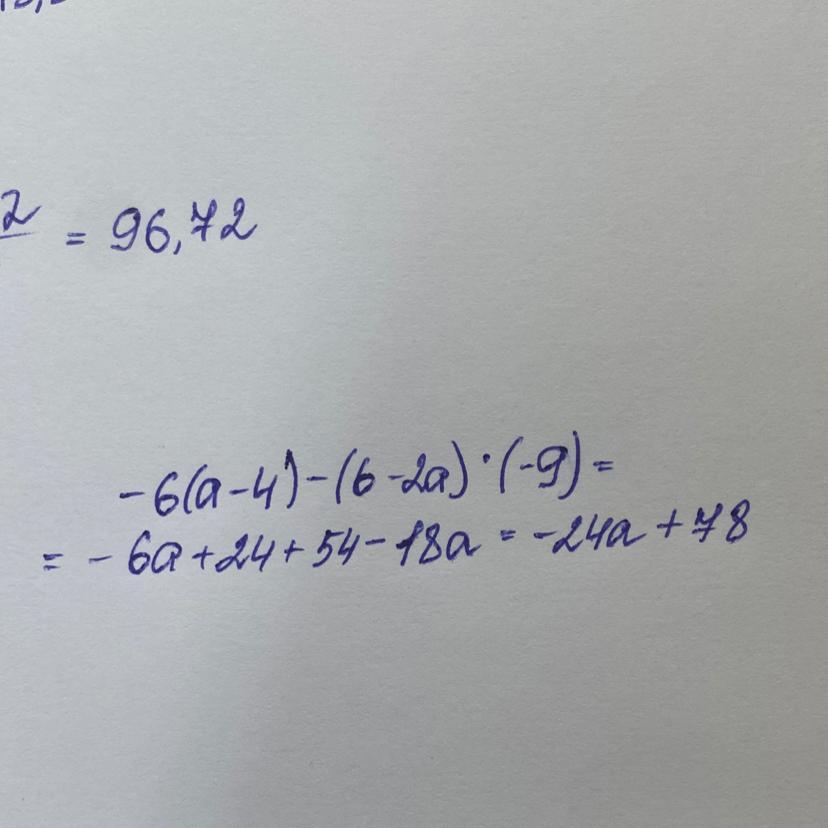 2 = 96,72
-6(a-4)-(6-2a)·(-9)=
= -6a+24+54-18a = -24a+78